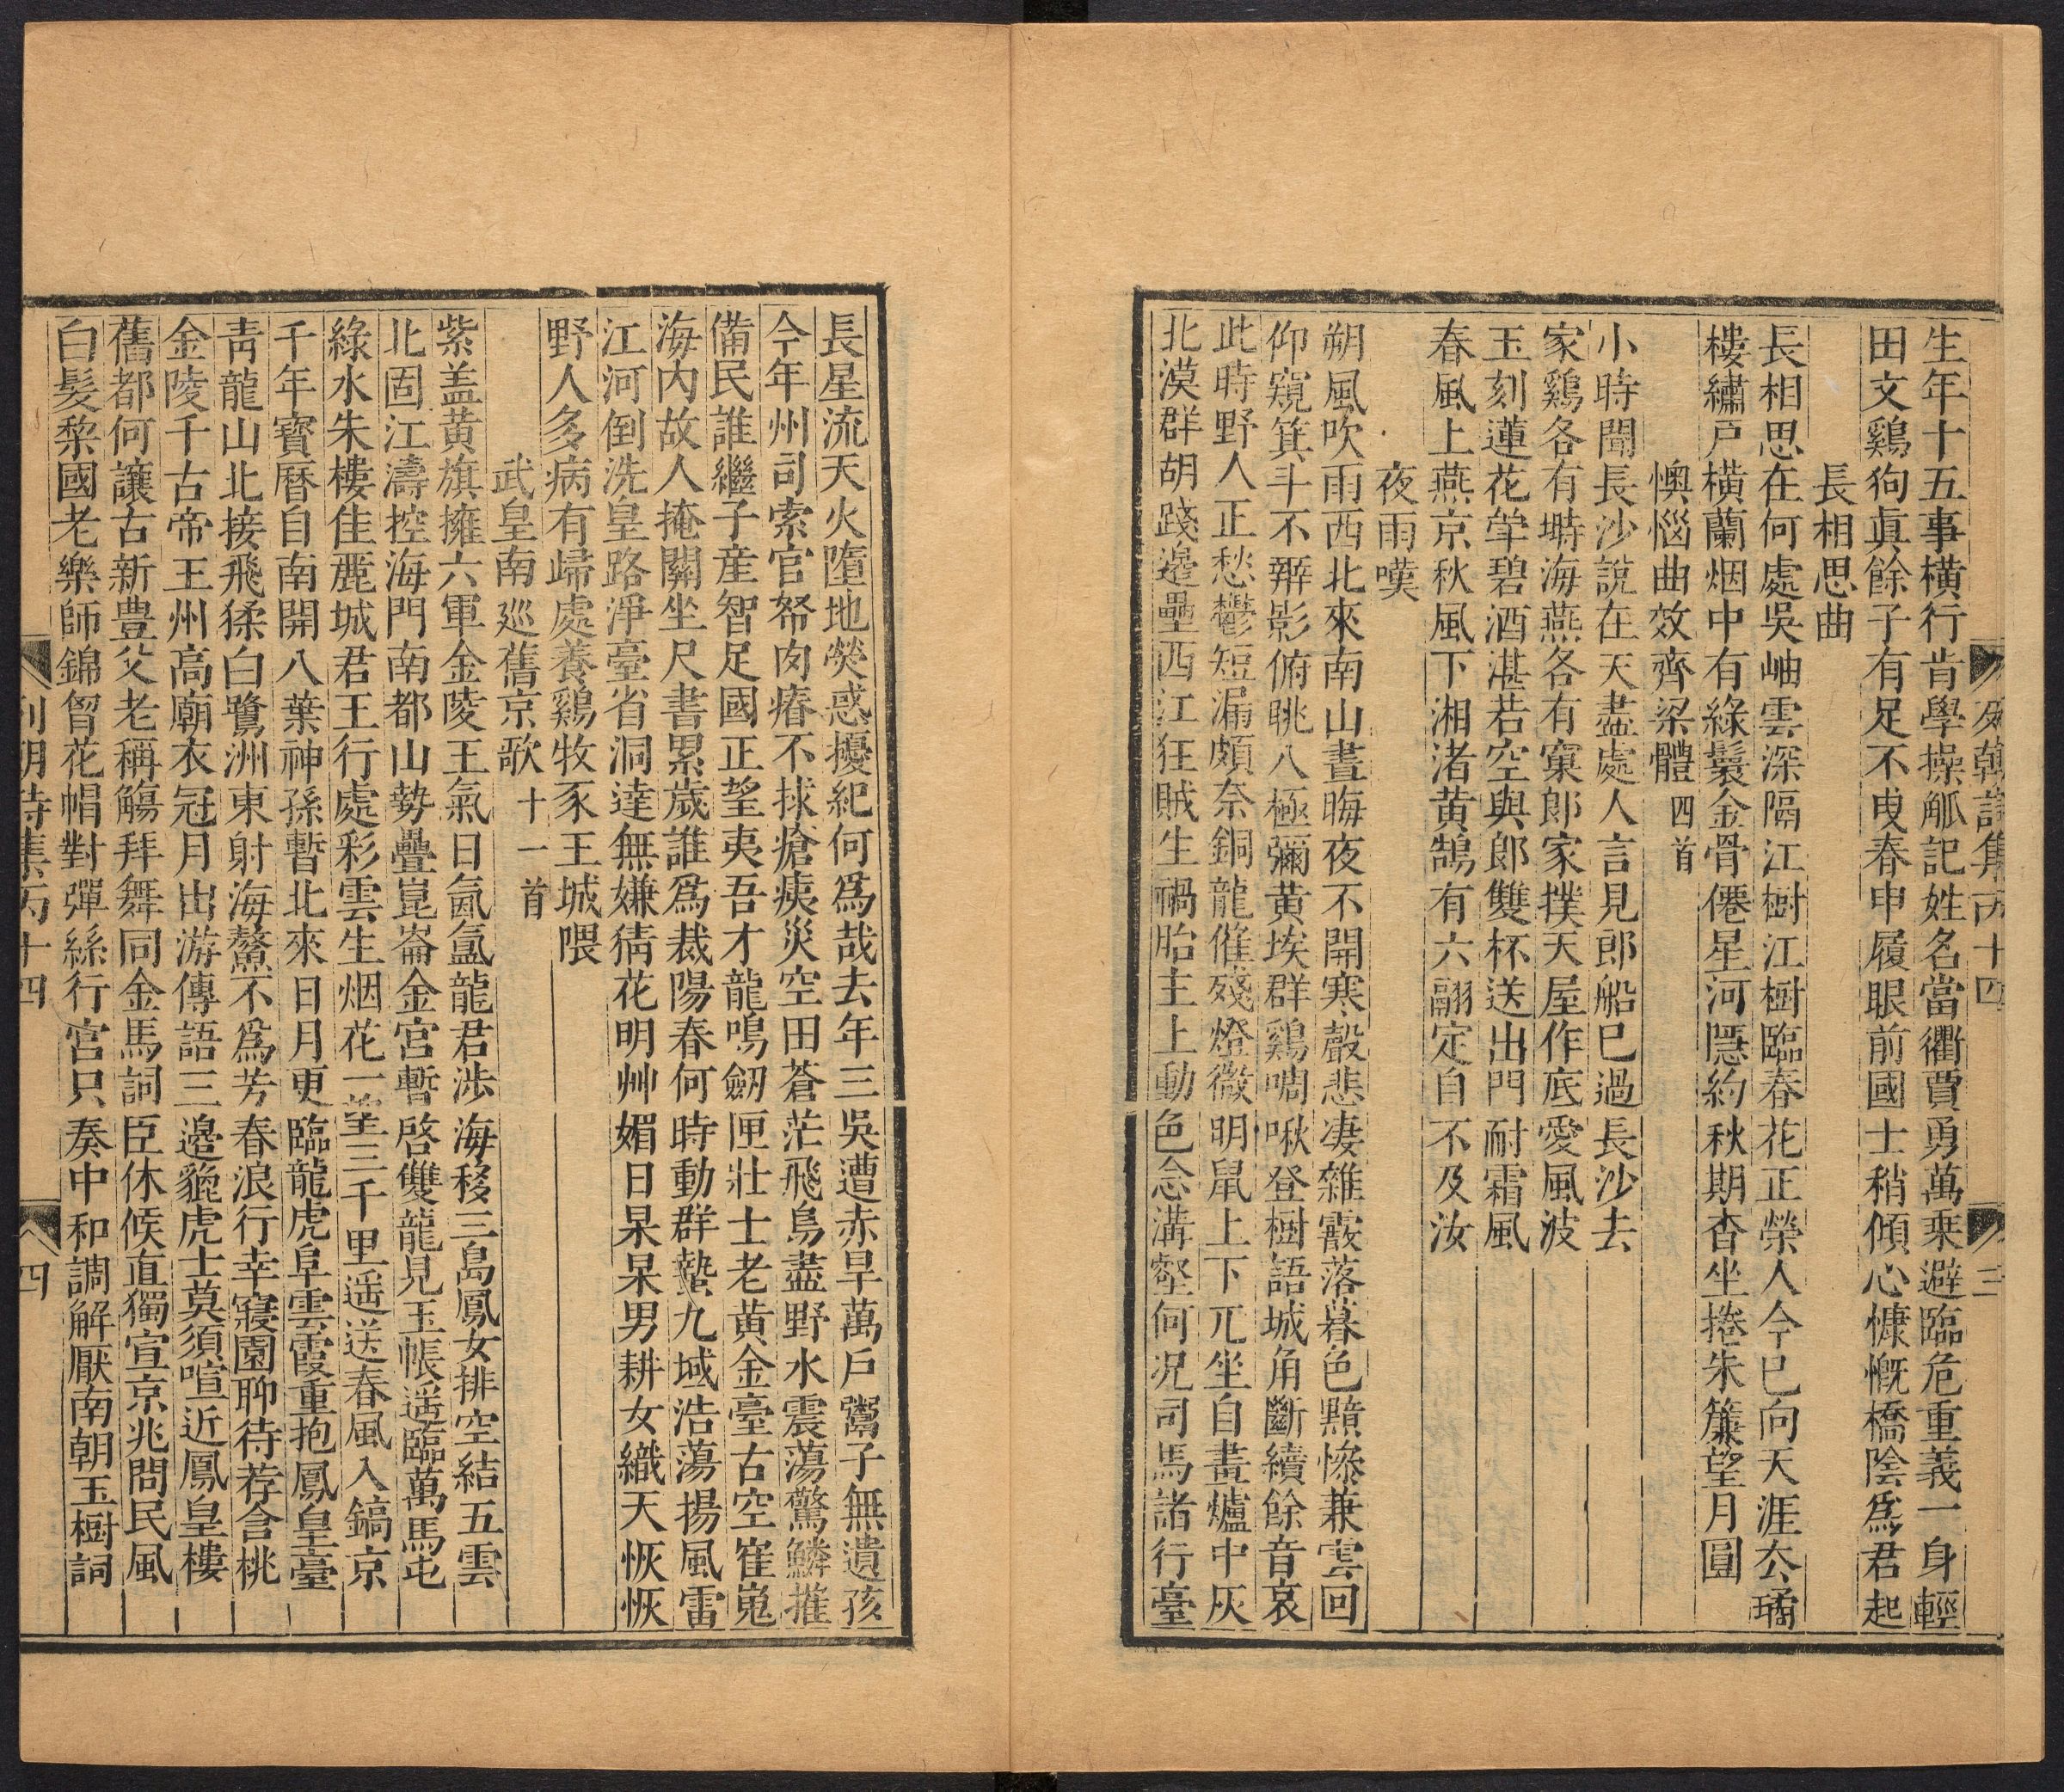 生年十五事橫行肯學操觚記姓名當衢賈勇萬乘避臨危重義一身輕
田文鷄狗眞餘子有足不曳春申履眼前國士稍傾心慷慨橋陰爲君起
長相思曲
長相思在何處吳岫雲深隔江樹江樹臨春花正榮人今已向天涯厺璚
樓繡戶橫蘭烟中有綠鬟金骨僊星河隱約秋期杳坐捲朱簾望月圓
懊惱曲效齊梁體 四首
小時聞長沙說在天盡處人言見郎船已過長沙去
家鷄各有塒海燕各有窠郎家撲天屋作底愛風波
玉刻蓮花斝碧酒湛若空與郎雙杯送出門耐霜風
春風上燕京秋風下湘渚黃鵠有六翮定自不及汝
夜雨嘆
朔風吹雨西北來南山晝晦夜不開寒聲悲淒雜霰落暮色黯慘兼雲回
仰窺箕斗不辨影俯眺八極彌黃埃群鷄啁啾登樹語城角斷續餘音哀
此時野人正愁鬱短漏頗奈銅龍催殘燈微明鼠上下兀坐自畫爐中灰
北漠群胡踐邊壘西江狂賊生禍胎主上動色念溝壑何况司馬諸行臺
列朝詩集丙十四
三
長星流天火墮地熒惑擾紀何爲哉去年三吳遭赤旱萬戶鬻子無遺孩
今年州司索官帑肉瘠不捄瘡痍災空田蒼茫飛鳥盡野水震蕩驚鱗摧
備民誰繼子産智足國正望夷吾才龍鳴劒匣壯士老黃金臺古空崔嵬
海內故人掩關坐尺書累歲誰爲裁陽春何時動群蟄九域浩蕩揚風雷
江河倒洗皇路淨臺省洞達無嫌猜花明艸媚日杲杲男耕女織天恢恢
野人多病有歸處養鷄牧豕王城隈
武皇南巡舊京歌 十一首
紫盖黃旗擁六軍金陵王氣日氤氳龍君涉海移三島鳳女排空結五雲
北固江濤控海門南都山勢疊崑崙金宮暫啓雙龍見玉帳遥臨萬馬屯
綠水朱樓佳麗城君王行處彩雲生烟花一望三千里遥送春風入鎬京
千年寶曆自南開八葉神孫暫北來日月更臨龍虎阜雲霞重抱鳳皇臺
靑龍山北接飛猱白鷺洲東射海鰲不爲芳春浪行幸寢園聊待荐含桃
金陵千古帝王州高廟衣冠月出游傳語三邊貔虎士莫須喧近鳳皇樓
舊都何讓古新豊父老稱觴拜舞同金馬詞臣休候直獨宣京兆問民風
白髮棃園老樂師錦曾花帽對彈絲行宮只奏中和調解厭南朝玉樹詞
列朝詩集丙十四
四